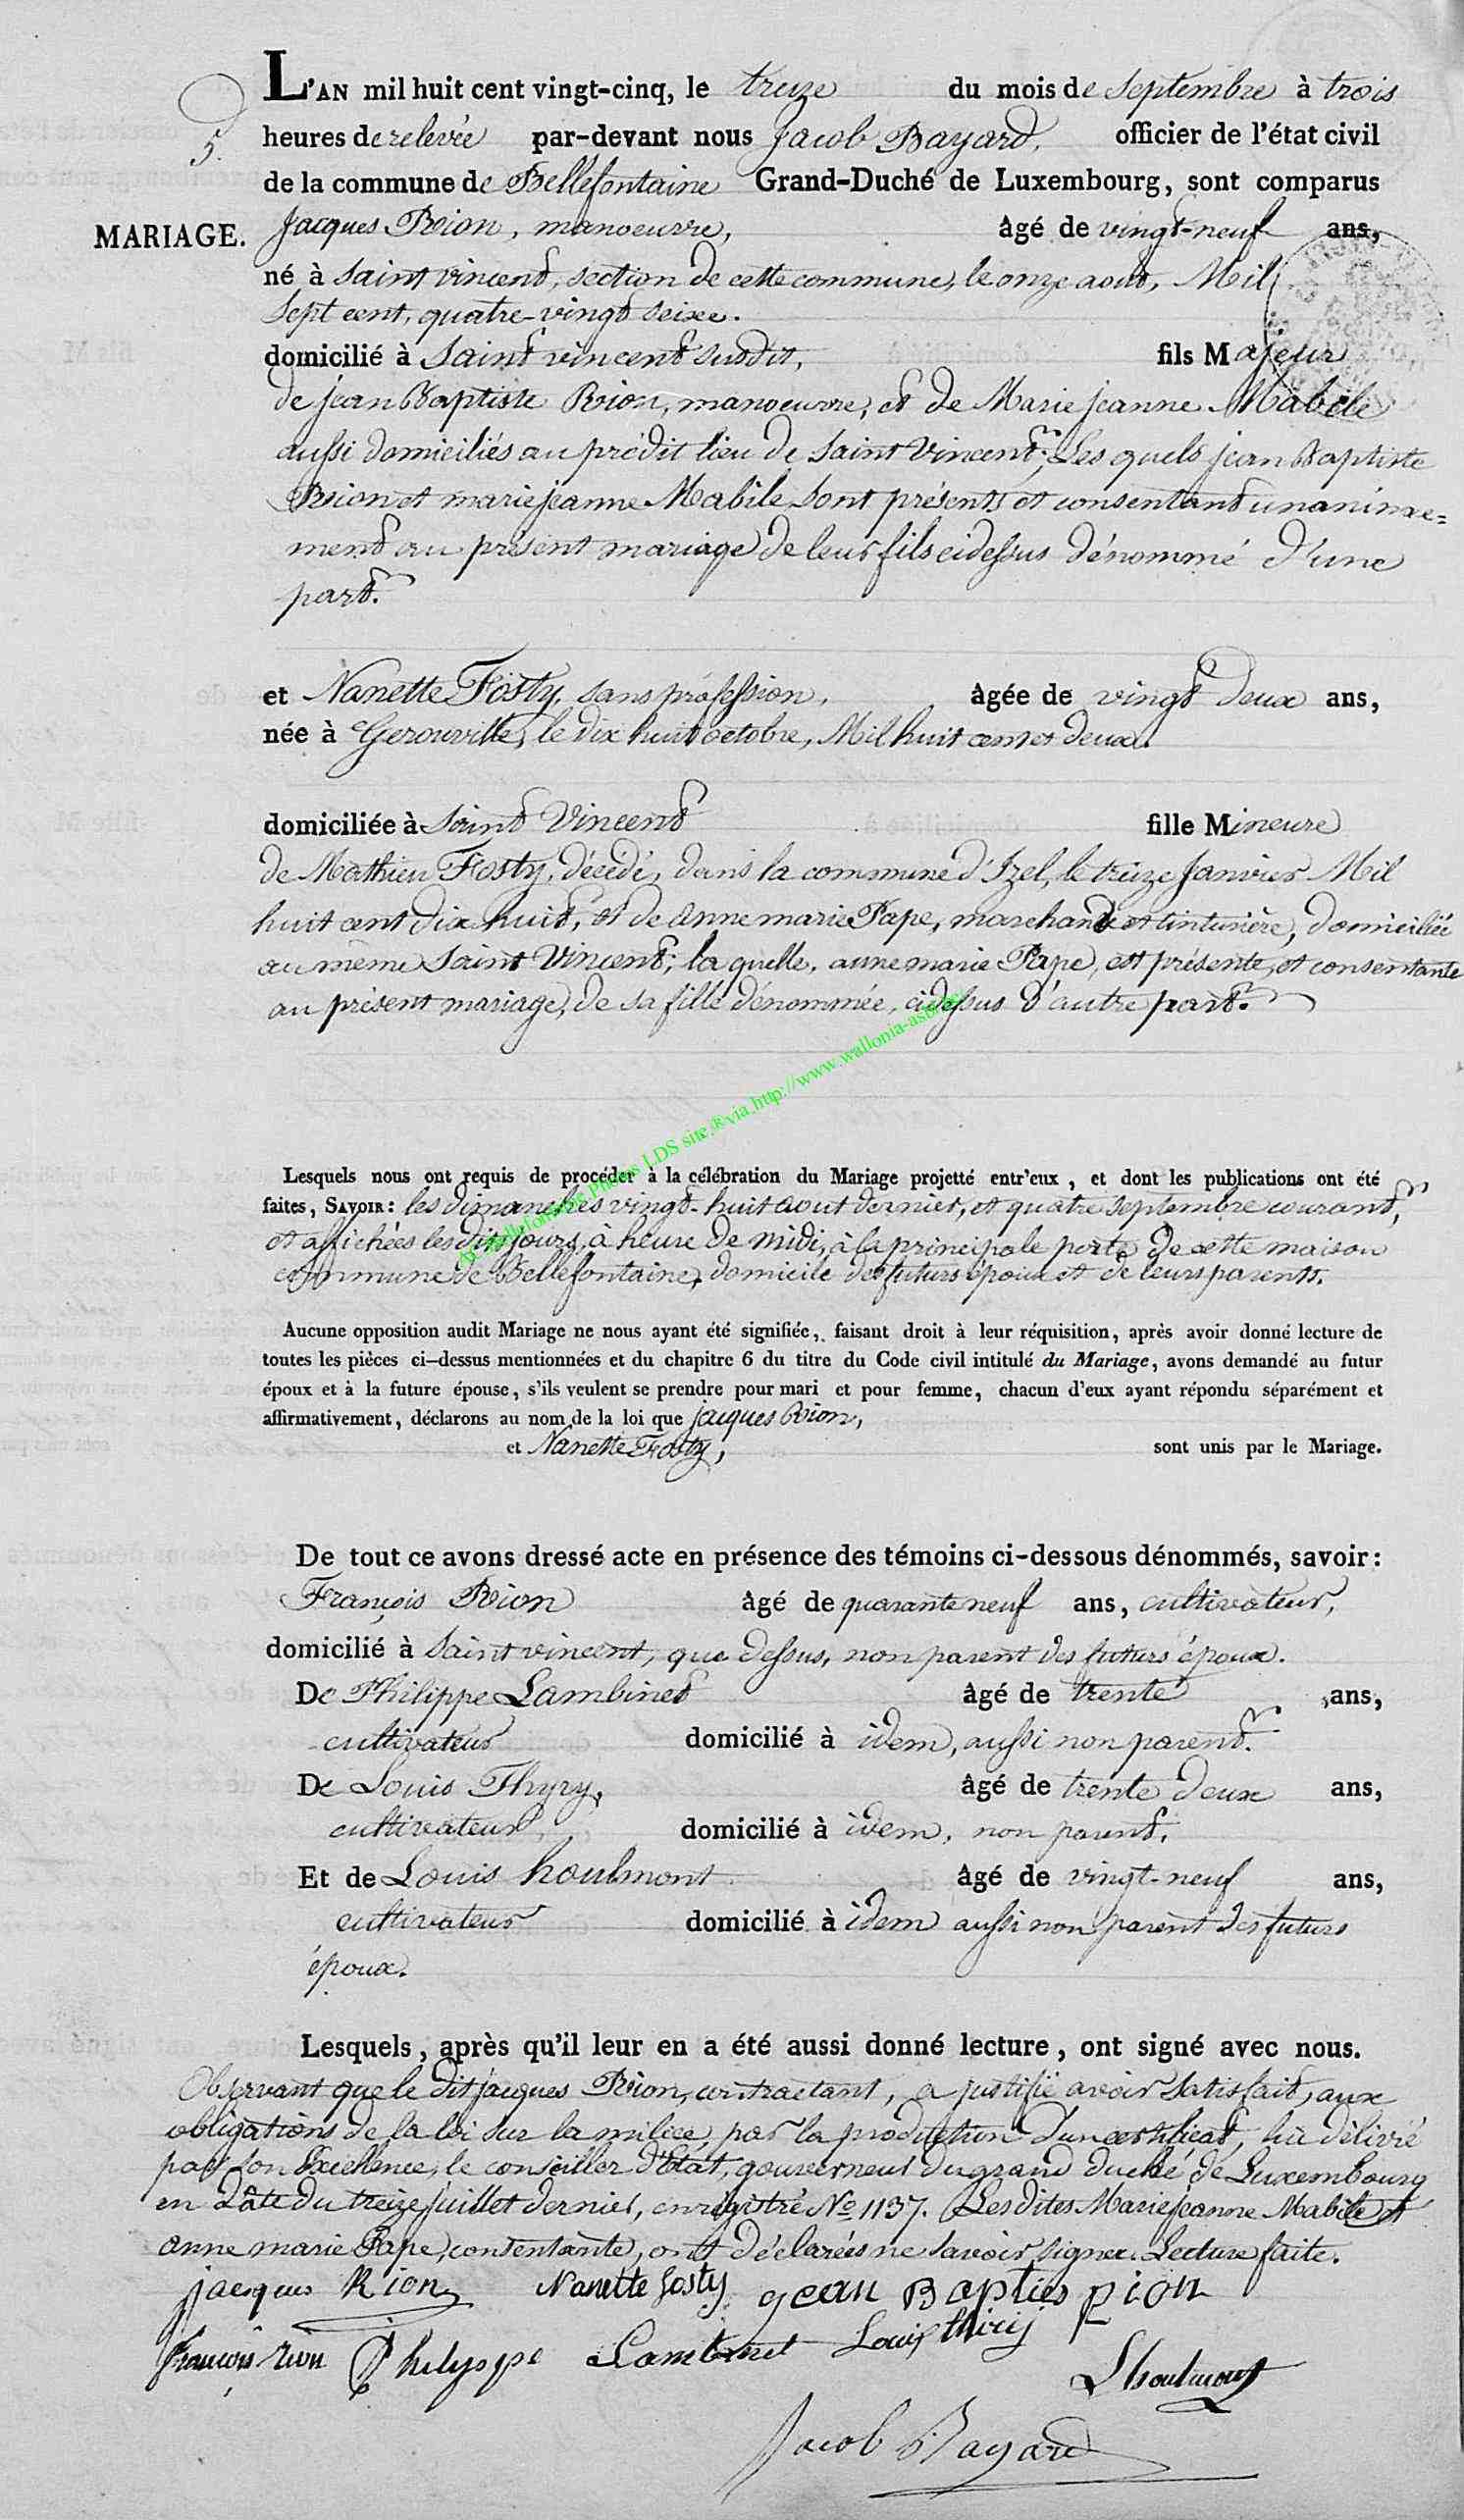 L'AN mil huit cent vingt-cinq, le treize du mois de Septembre à trois
5.
heures de relevée par-devant nous Jacob Bayard, officier de l'état civil
de la commune de Bellefontaine Grand-Duché de Luxembourg, sont comparus
MARIAGE.
Jacques Rion, manoeuvre, âgé de vingt-neuf ans,
né à Saint vincent, section de cette commune, le onze aout, Mil
Sept cent, quatre-vingt seize.
domicilié à Saint vincent susdit, fils Majeur
de jean Baptiste Rion, manoeuvre, et de Marie jeanne Mabile
aussi domiciliés au prédit lieu de Saint Vincent; Les quels jean Baptiste
Rion et marie jeanne Mabile, sont présents et consentant unanime=
ment au présent mariage de leur fils cidessus dénommé d'une
part.
et Nanette Fosty, sans proféssion, âgée de vingt deux ans,
née à Gerouville, le dix huit octobre, Mil huit cent et deux.
domiciliée à Saint Vincent fille Mineure
de Mathieu Fosty, décédé, dans la commune d'Izel, le treize Janvier Mil
huit cent dix huit, et de anne marie Pape, marchande et tinturière, domiciliée
au même Saint Vincent; la quelle, anne marie Pape, est présente, et consentante
au présent mariage, de sa fille dénommée, cidessus d'autre part.
Bellefontaine Photos LDS site ®via http://www.wallonia-asbl
Lesquels nous ont requis de procéder à la célébration du Mariage projetté entr'eux, et dont les publications ont été
faites, SAVOIR: les dimanches vingt-huit aout dernier, et quatre septembre courant,
et affichées les dits jours, à heure de midi, à la principale porte de cette maison
commune de Bellefontaine, domicile des futurs époux et de leurs parents.
Aucune opposition audit Mariage ne nous ayant été signifiée, faisant droit à leur réquisition, après avoir donné lecture de
toutes les pièces ci-dessus mentionnées et du chapitre 6 du titre du Code civil intitulé du Mariage, avons demandé au futur
époux et à la future épouse, s'ils veulent se prendre pour mari et pour femme, chacun d'eux ayant répondu séparément et
affirmativement, déclarons au nom de la loi que jacques Rion,
et Nanette Frosty, sont unis par le Mariage.
De tout ce avons dressé acte en présence des témoins ci-dessous dénommés, savoir:
François Rion âgé de quarante neuf ans, cultivateur,
domicilié à Saint vincent, que dessus, non parent des futurs époux.
De Philippe Lambinet âgé de trente ans,
cultivateur domicilié à idem, aussi non parent.
De Louis Thyry, âgé de trente deux ans,
cultivateur, domicilié à idem, non parent.
Et de Louis houlmont âgé de vingt-neuf ans,
cultivateur domicilié à idem aussi non parent des futurs
époux.
Lesquels, après qu'il leur en a été aussi donné lecture, ont signé avec nous.
Observant que le dit jacques Rion, contractant, a justifié avoir Satisfait, aux
obligations de la loi sur la milice, par la production d'un certificat, lui délivré
par Son Excellence, le conseiller d'état, gouverneur du grand duché de Luxembourg
en date du treize juillet dernier, enregistré No 1137. Les dites Marie jeanne Mabile et
anne marie Pape, contentante, ont déclarées ne Savoir signer. Lecture faite.
jacques Rion Nanette fosty jean Bapties Rion
françois rion Philyppe Lambinet Louis thiry
Lhoulmont
Jacob Bayard